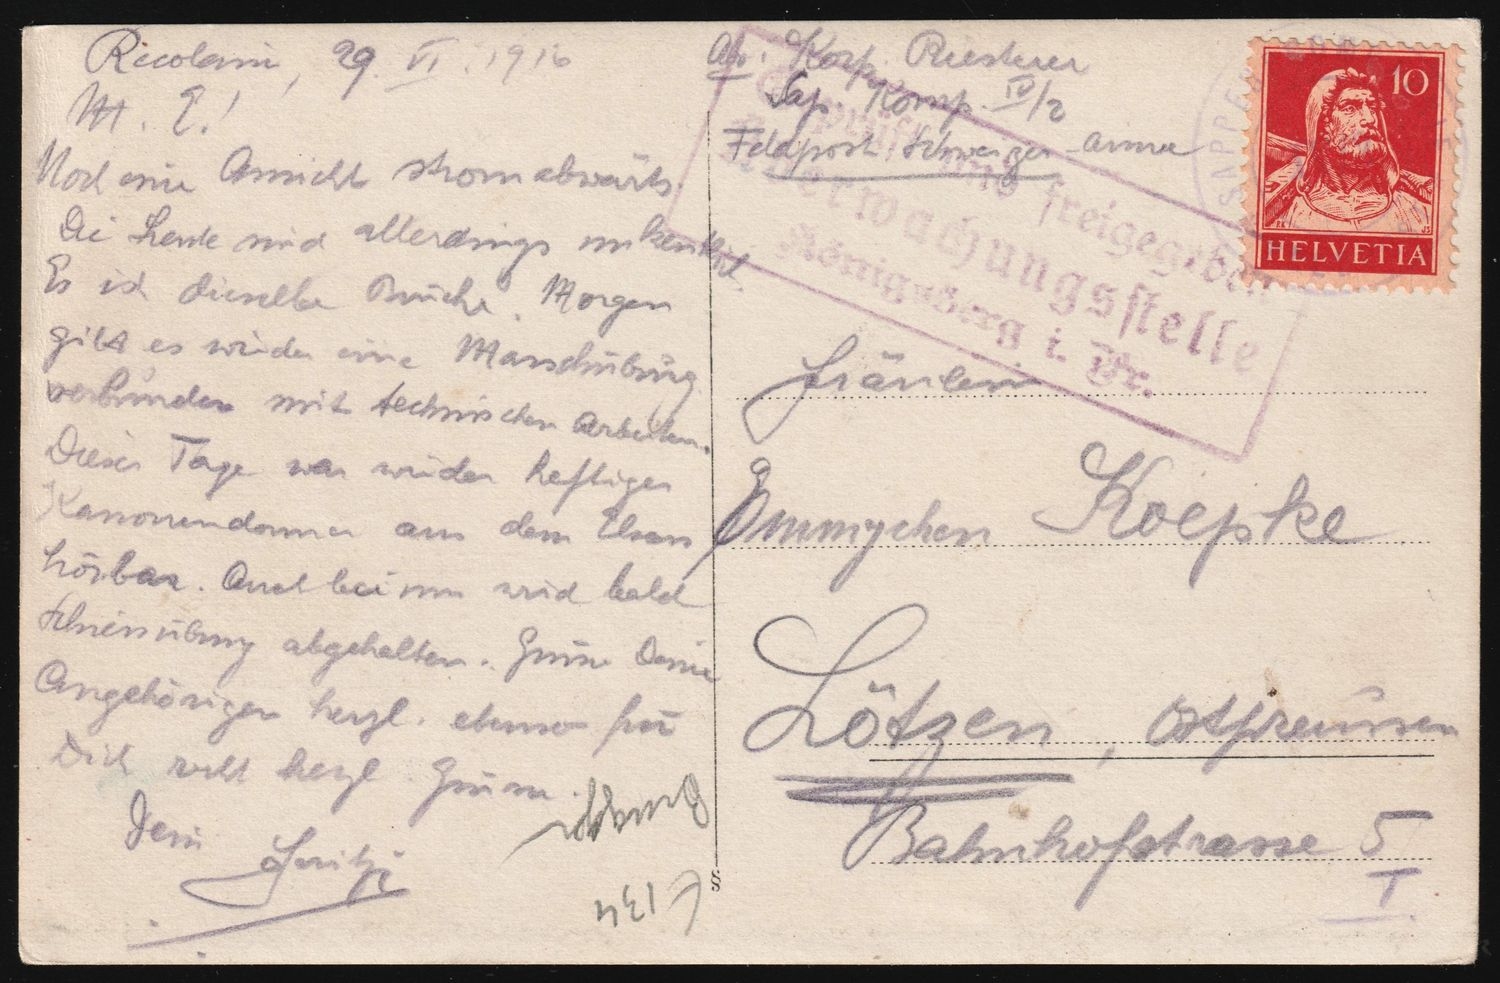 Recolaine, 29. VI. 1916
M. E.!
Noch eine Ansicht stromabwärts.
Die Leute sind allerdings unkenntlich
Es ist dieselbe Brücke. Morgen
gibt es wieder eine Marschübung
verbunden mit technischen Arbeiten.
Dieser Tage war wieder heftiger
Kanonendonner aus dem Elsass
hörbar. Auch bei uns wird bald
Schiessübung abgehalten. Grüsse Deine
Angehörigen herzl. ebenso für
Dich recht herzl. Grüsse.
Dein
Fritz
F 134
§
Abs. Korp. Riesterer
Sap. Komp. IV/2
Feldpost, Schweizer-armee
Geprüft und freigegeben
Überwachungsstelle
Königsberg i. Pr.
SAPPEUR
10
HELVETIA
Fräulein
Emmychen Koepke
Lötzen, Ostpreussen
Bahnhofstrasse 5
I